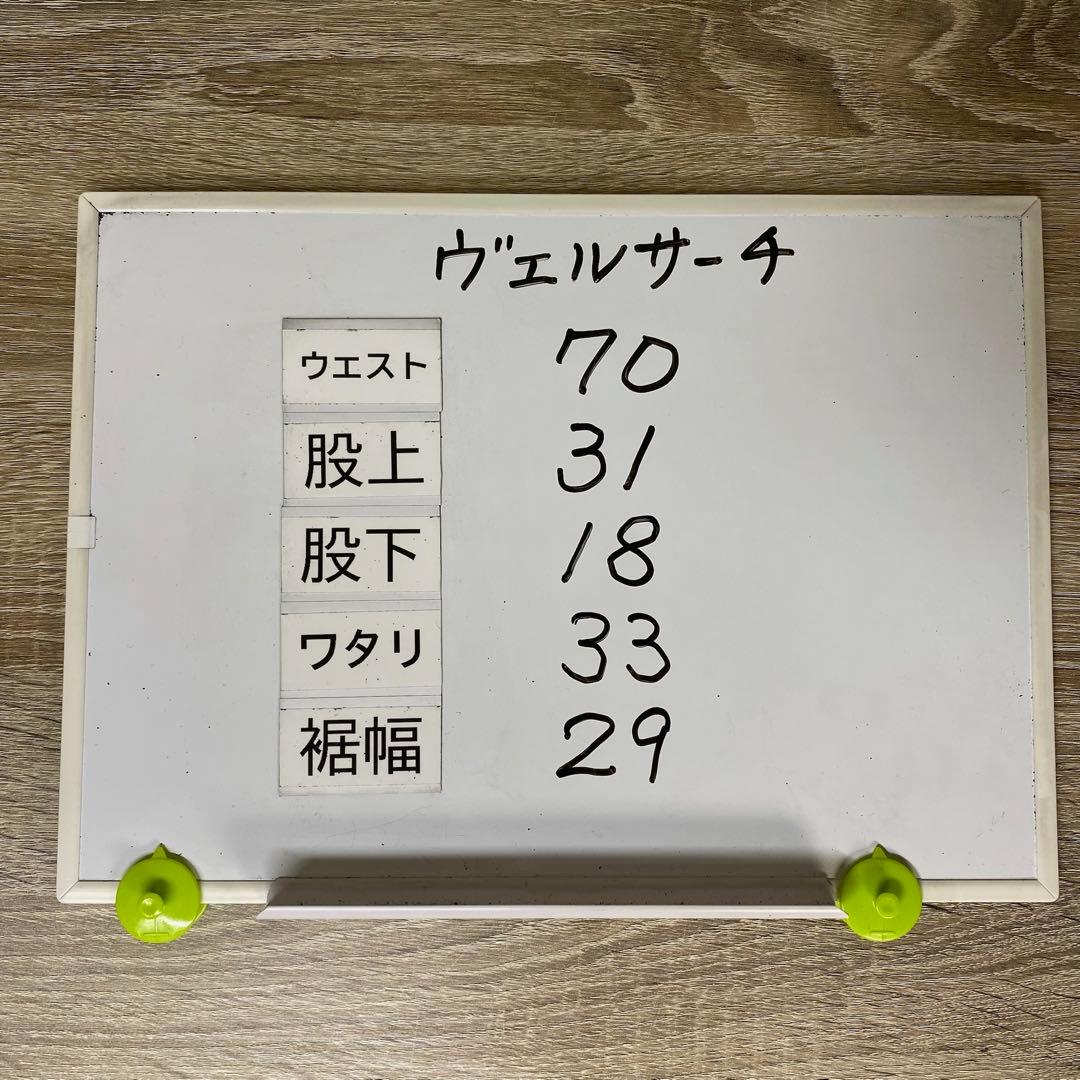 ヴェルサーチ
ウエスト 70
股上 31
股下 18
ワタリ 33
裾幅 29